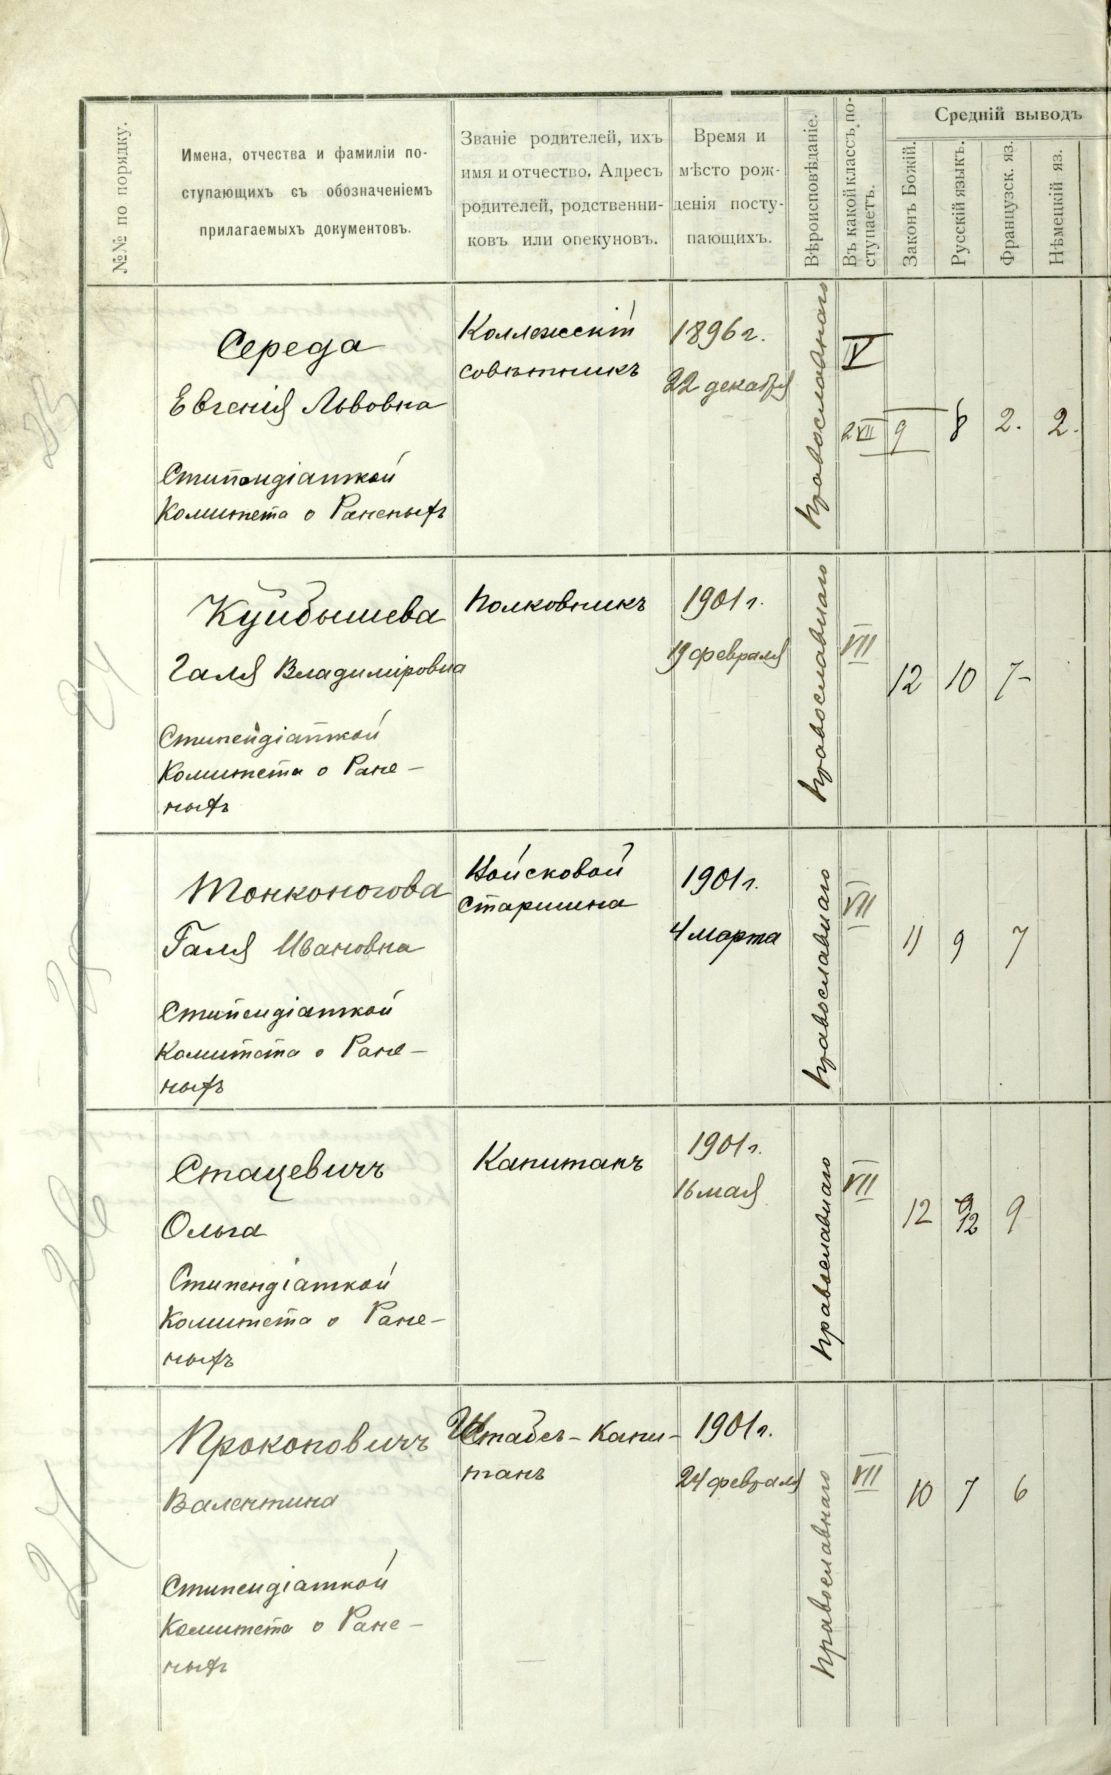 №№ по порядку.
Имена, отчества и фамиліи по-
ступающихъ съ обозначеніемъ
прилагаемыхъ документовъ.
Званіе родителей, ихъ
имя и отчество. Адресъ
родителей, родственни-
ковъ или опекуновъ.
Время и
мѣсто рож-
денія посту-
пающихъ.
Вѣроисповѣданіе.
Въ какой классъ по-
ступаетъ.
Средній выводъ
Законъ Божій.
Русскій языкъ.
Французск. яз.
Нѣмецкій яз.
Середа
Евгенія Львовна
Стипендіаткой
Комитета о Раненыхъ
Коллежскій
совѣтникъ
1896 г.
22 декабря
Православнаго
V
2 VII
9
8
2.
2.
24
Куйбышева
Галя Владиміровна
Стипендіаткой
Комитета о Ране-
ныхъ
Полковникъ
1901 г.
19 февраля
Православнаго
VII
12
10
7-
Тонконогова
Галя Ивановна
Стипендіаткой
Комитета о Ране-
ныхъ
Войсковой
Старшина
1901 г.
4 марта
Православнаго
VII
11
9
7
26
Стацевичъ
Ольга
Стипендіаткой
Комитета о Ране-
ныхъ
Капитанъ
1901 г.
16 мая
Православнаго
VII
12
9
12
9
Прокоповичъ
Валентина
Стипендіаткой
Комитета о Ране-
ныхъ
Штабсъ-Капи-
танъ
1901 г.
24 февраля
Православнаго
VII
10
7
6